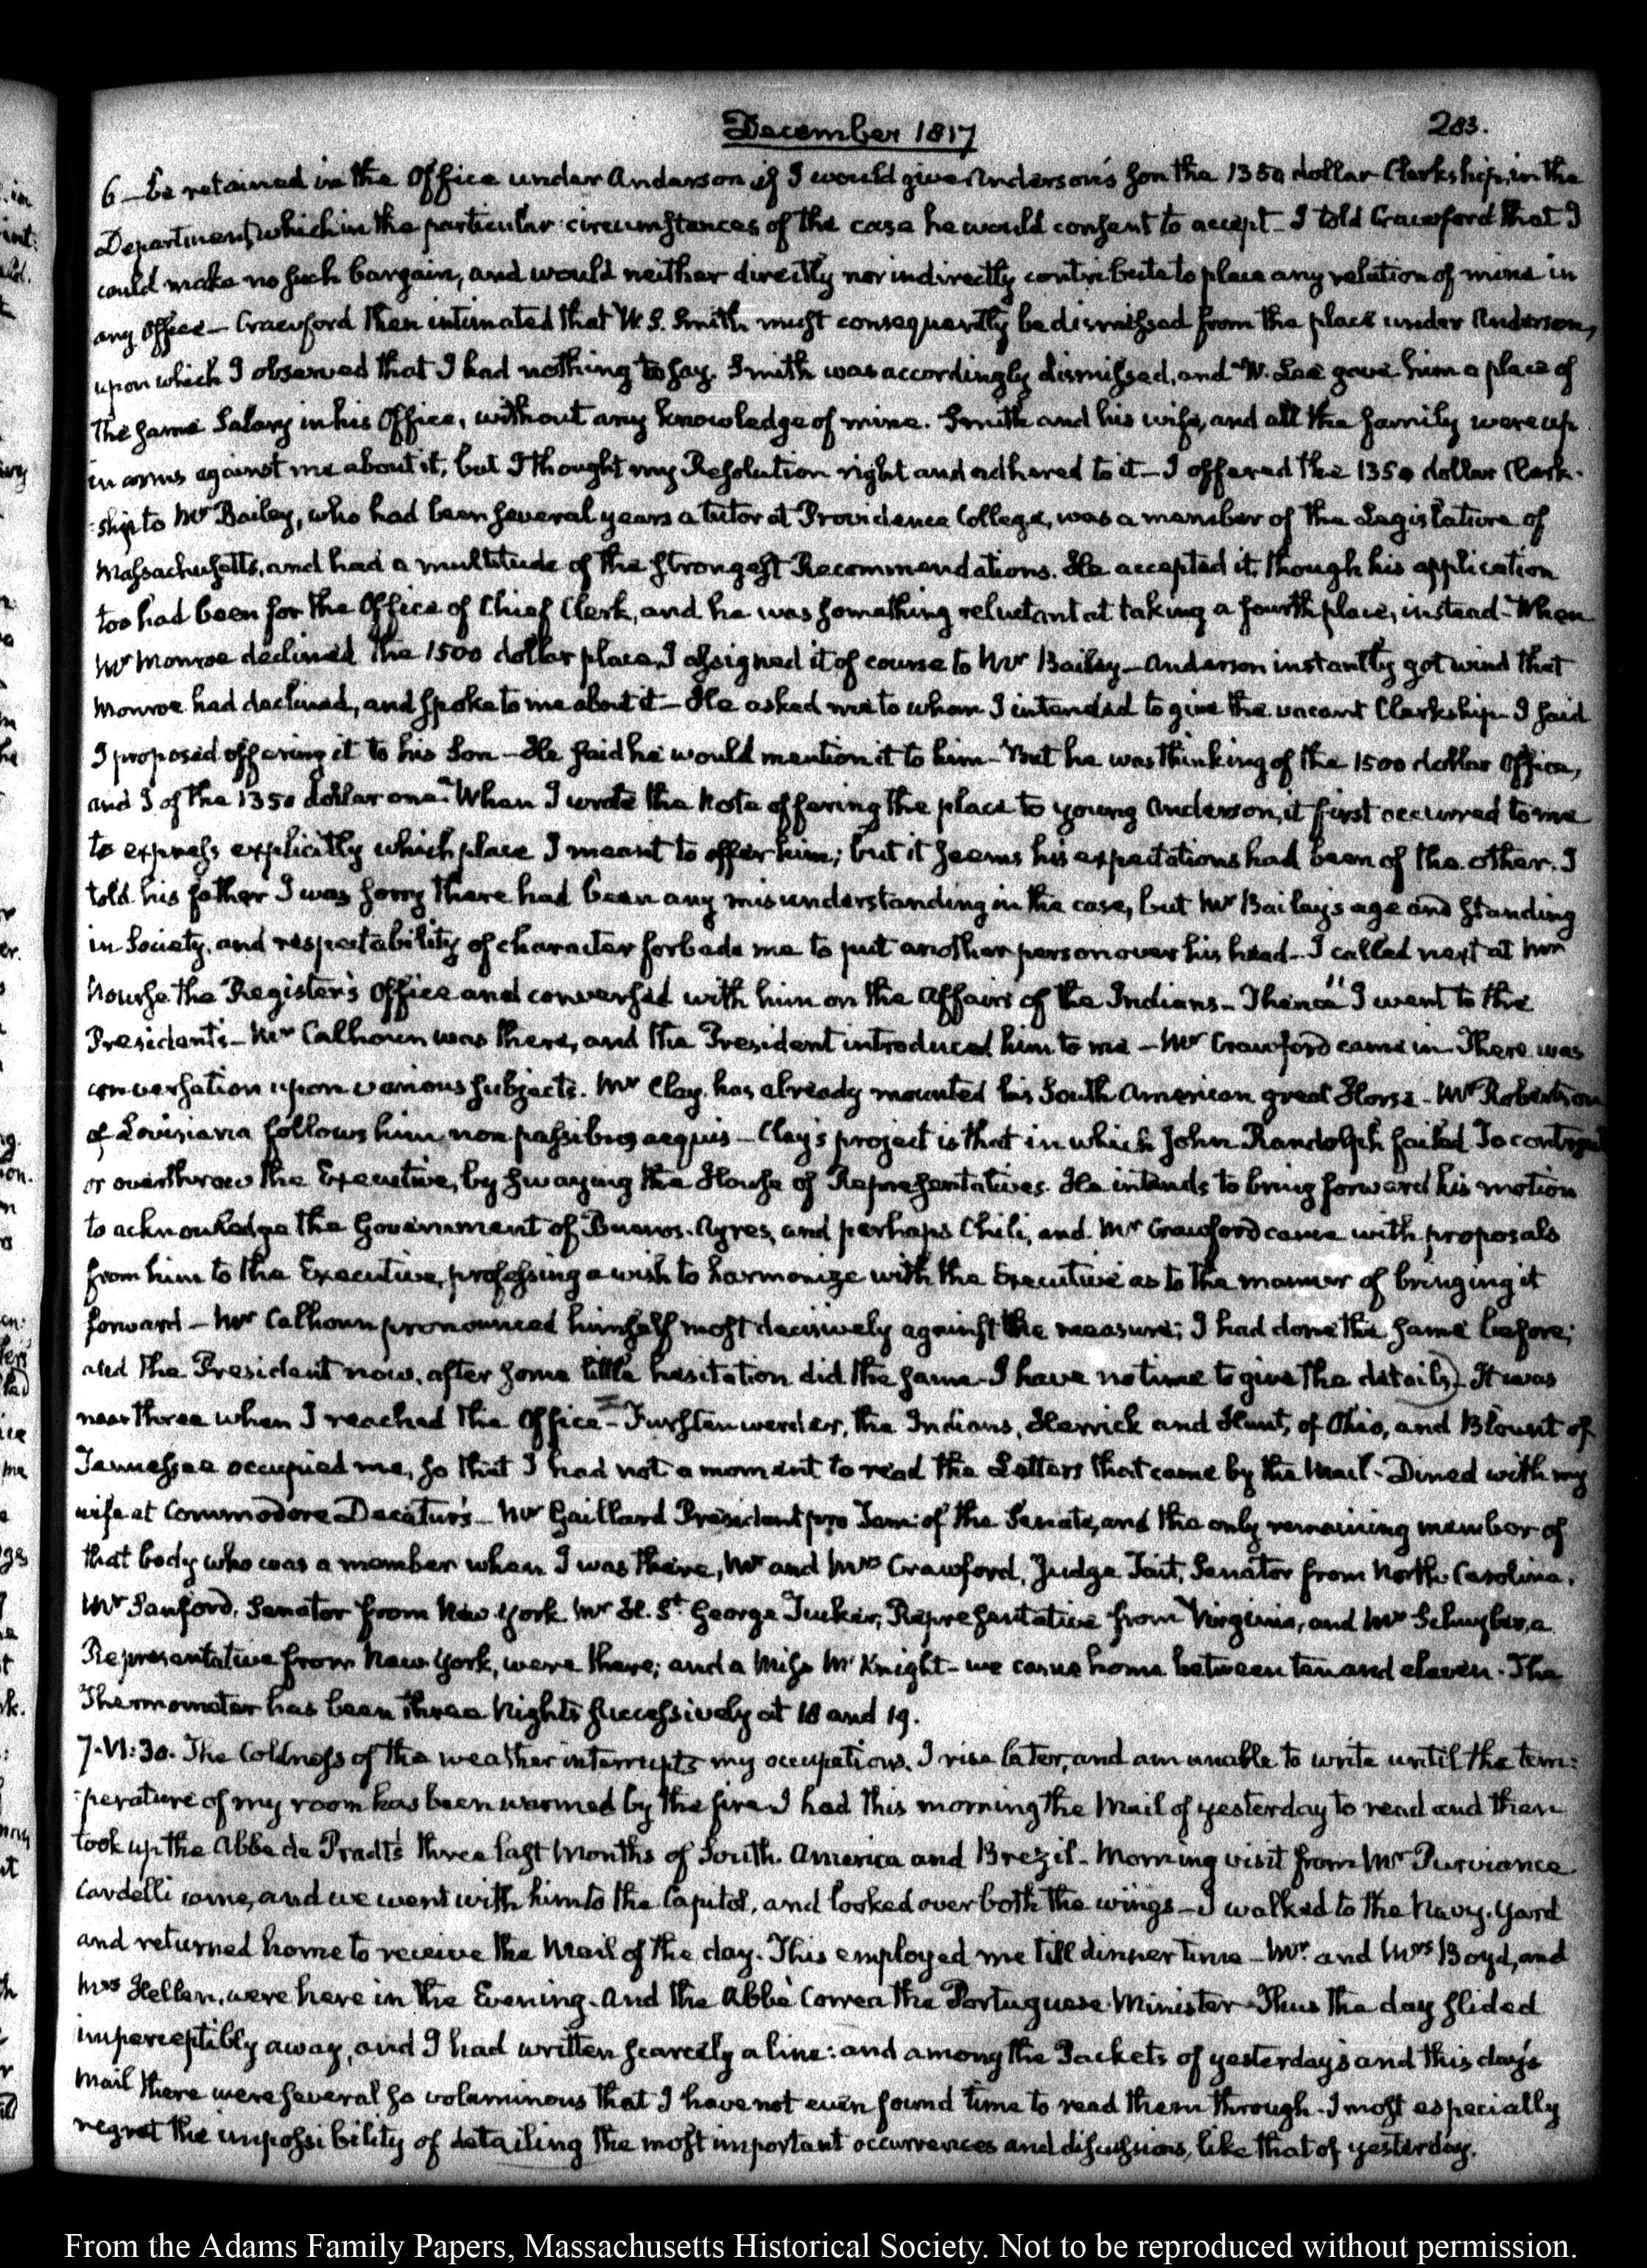 December 1817
283.
6 – be retained in the Office under Anderson if I would give Anderson's son the 1350 dollar Clerkship, in the
Department, which in the particular circumstances of the case he would consent to accept – I told Crawford that I
could make no such bargain, and would neither directly nor indirectly contribute to place any relation of mine in
any Office – Crawford then intimated that W. S. Smith must consequently be dismissed from the place under Anderson,
upon which I observed that I had nothing to say. Smith was accordingly dismissed, and W. Lee gave him a place of
the same Salary in his Office, without any knowledge of mine. Smith and his wife, and all the family were up
in arms against me about it, but I thought my Resolution right and adhered to it – I offered the 1350 dollar Clerk-
-ship to Mr Bailey, who had been several years a tutor at Providence College, was a member of the Legislature of
Massachusetts, and had a multitude of the strongest Recommendations. He accepted it, though his application
too had been for the Office of Chief Clerk, and he was something reluctant at taking a fourth place, instead – When
Mr Monroe declined the 1500 dollar place, I assigned it of course to Mr Bailey – Anderson instantly got wind that
Monroe had declined, and spoke to me about it – He asked me to whom I intended to give the vacant Clerkship – I said
I proposed offering it to his Son – He said he would mention it to him – But he was thinking of the 1500 dollar Office,
and I of the 1350 dollar one. When I wrote the Note offering the place to young Anderson, it first occurred to me
to express explicitly which place I meant to offer him; but it seems his expectations had been of the other. I
told his father I was sorry there had been any misunderstanding in the case, but Mr Bailey's age and standing
in Society, and respectability of character forbade me to put another person over his head – I called next at Mr
Nourse the Register's Office and conversed with him on the Affairs of the Indians – Thence I went to the
President's – Mr Calhoun was there, and the President introduced him to me – Mr Crawford came in – There was
conversation upon various subjects. Mr Clay has already mounted his South American great Horse – Mr Robertson
of Louisiana follows him non passibus aequis – Clay's project is that in which John Randolph failed To control
or overthrow the Executive, by swaying the House of Representatives. He intends to bring forward his motion
to acknowledge the Government of Buenos-Ayres, and perhaps Chili, and Mr Crawford came with proposals
from him to the Executive, professing a wish to harmonize with the Executive as to the manner of bringing it
forward – Mr Calhoun pronounced himself most decisively against the measure; I had done the same before;
and the President now, after some little hesitation did the same – I have no time to give the details) It was
near three when I reached the Office – Furstenwerder, the Indians, Herrick and Hunt, of Ohio, and Blount of
Tennessee occupied me, so that I had not a moment to read the Letters that came by the Mail – Dined with my
wife at Commodore Decatur's – Mr Gaillard President pro Tem: of the Senate, and the only remaining member of
that body who was a member when I was there, Mr and Mrs Crawford, Judge Tait, Senator from North Carolina,
Mr Sanford, Senator from New York Mr H. St George Tucker, Representative from Virginia, and Mr Schuyler, a
Representative from New York, were there; and a Miss McKnight – we came home between ten and eleven. The
Thermometer has been three Nights successively at 18 and 19.
7. VI:30. The Coldness of the weather interrupts my occupations. I rise later, and am unable to write until the tem:
-perature of my room has been warmed by the fire I had this morning the Mail of yesterday to read and then
took up the Abbe de Pradt's three last Months of South America and Brezil – Morning visit from Mr Purviance
Cardelli came, and we went with him to the Capitol, and looked over both the wings – I walked to the Navy-Yard
and returned home to receive the Mail of the day. This employed me till dinner time – Mr and Mrs Boyd, and
Mrs Hellen, were here in the Evening. And the Abbé Correa the Portuguese Minister – Thus the day slided
imperceptibly away, and I had written scarcely a line: and among the Packets of yesterday's and this day's
Mail there were several so voluminous that I have not even found time to read them through – I most especially
regret the impossibility of detailing the most important occurrences and discussions, like that of yesterday.
From the Adams Family Papers, Massachusetts Historical Society. Not to be reproduced without permission.